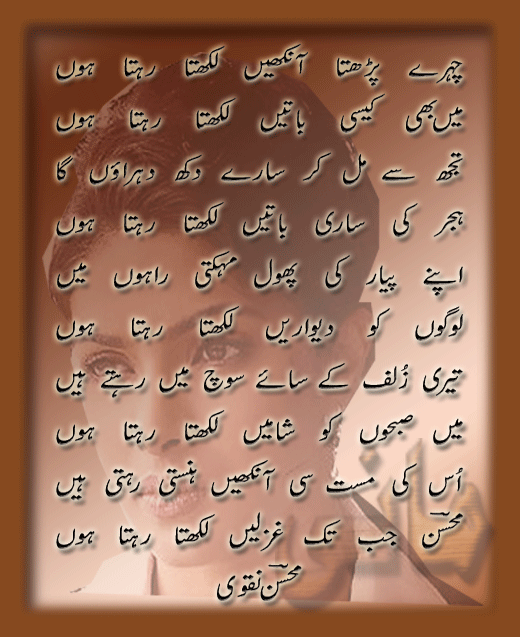 چہرے پڑھتا آنکھیں لکھتا رہتا ہوں
میں بھی کیسی باتیں لکھتا رہتا ہوں
تجھ سے مل کر سارے دکھ دہراؤں گا
ہجر کی ساری باتیں لکھتا رہتا ہوں
اپنے پیار کی پھول مہکتی راہوں میں
لوگوں کو دیواریں لکھتا رہتا ہوں
تیری زُلف کے سائے سوچ میں رہتے ہیں
میں صبحوں کو شامیں لکھتا رہتا ہوں
اُس کی مست سی آنکھیں ہنستی رہتی ہیں
محسنؔ جب تک غزلیں لکھتا رہتا ہوں
محسنؔ نقوی